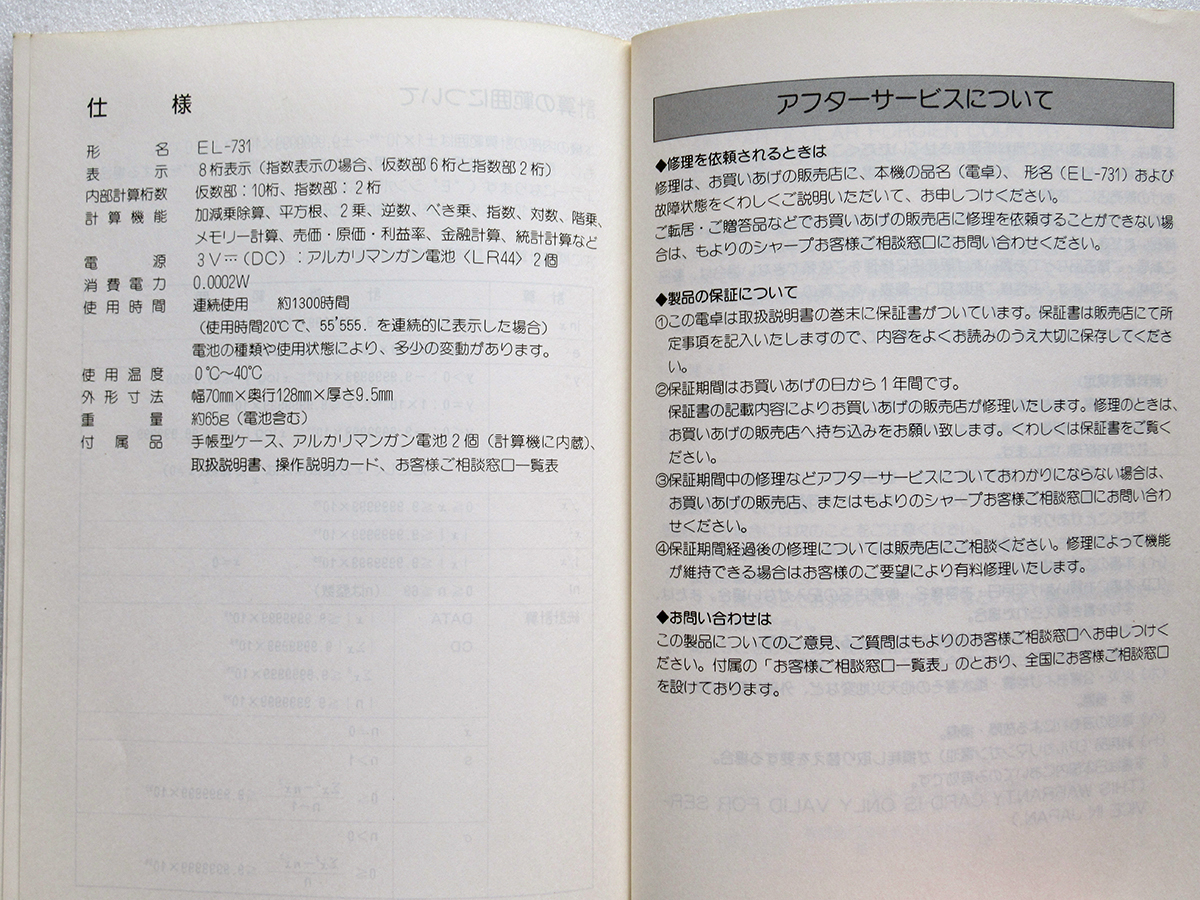 仕　様
形　　　名　EL-731
表　　　示　8桁表示（指数表示の場合、仮数部6桁と指数部2桁）
内部計算桁数　仮数部：10桁、指数部：2桁
計算機能　加減乗除算、平方根、2乗、逆数、べき乗、指数、対数、階乗、
メモリー計算、売価・原価・利益率、金融計算、統計計算など
電　　　源　3V⎓（DC）：アルカリマンガン電池〈LR44〉2個
消費電力　0.0002W
使用時間　連続使用　約1300時間
（使用時間20℃で、55'555. を連続的に表示した場合）
電池の種類や使用状態により、多少の変動があります。
使用温度　0℃～40℃
外形寸法　幅70mm×奥行128mm×厚さ9.5mm
重　　　量　約65g（電池含む）
付属品　手帳型ケース、アルカリマンガン電池2個（計算機に内蔵）、
取扱説明書、操作説明カード、お客様ご相談窓口一覧表
アフターサービスについて
◆修理を依頼されるときは
修理は、お買いあげの販売店に、本機の品名（電卓）、形名（EL-731）および
故障状態をくわしくご説明いただいて、お申しつけください。
ご転居・ご贈答品などでお買いあげの販売店に修理を依頼することができない場
合は、もよりのシャープお客様ご相談窓口にお問い合わせください。
◆製品の保証について
①この電卓は取扱説明書の巻末に保証書がついています。保証書は販売店にて所
定事項を記入いたしますので、内容をよくお読みのうえ大切に保存してくださ
い。
②保証期間はお買いあげの日から1年間です。
保証書の記載内容によりお買いあげの販売店が修理いたします。修理のときは、
お買いあげの販売店へ持ち込みをお願い致します。くわしくは保証書をご覧く
ださい。
③保証期間中の修理などアフターサービスについておわかりにならない場合は、
お買いあげの販売店、またはもよりのシャープお客様ご相談窓口にお問い合わ
せください。
④保証期間経過後の修理については販売店にご相談ください。修理によって機能
が維持できる場合はお客様のご要望により有料修理いたします。
◆お問い合わせは
この製品についてのご意見、ご質問はもよりのお客様ご相談窓口へお申しつけく
ださい。付属の「お客様ご相談窓口一覧表」のとおり、全国にお客様ご相談窓口
を設けております。